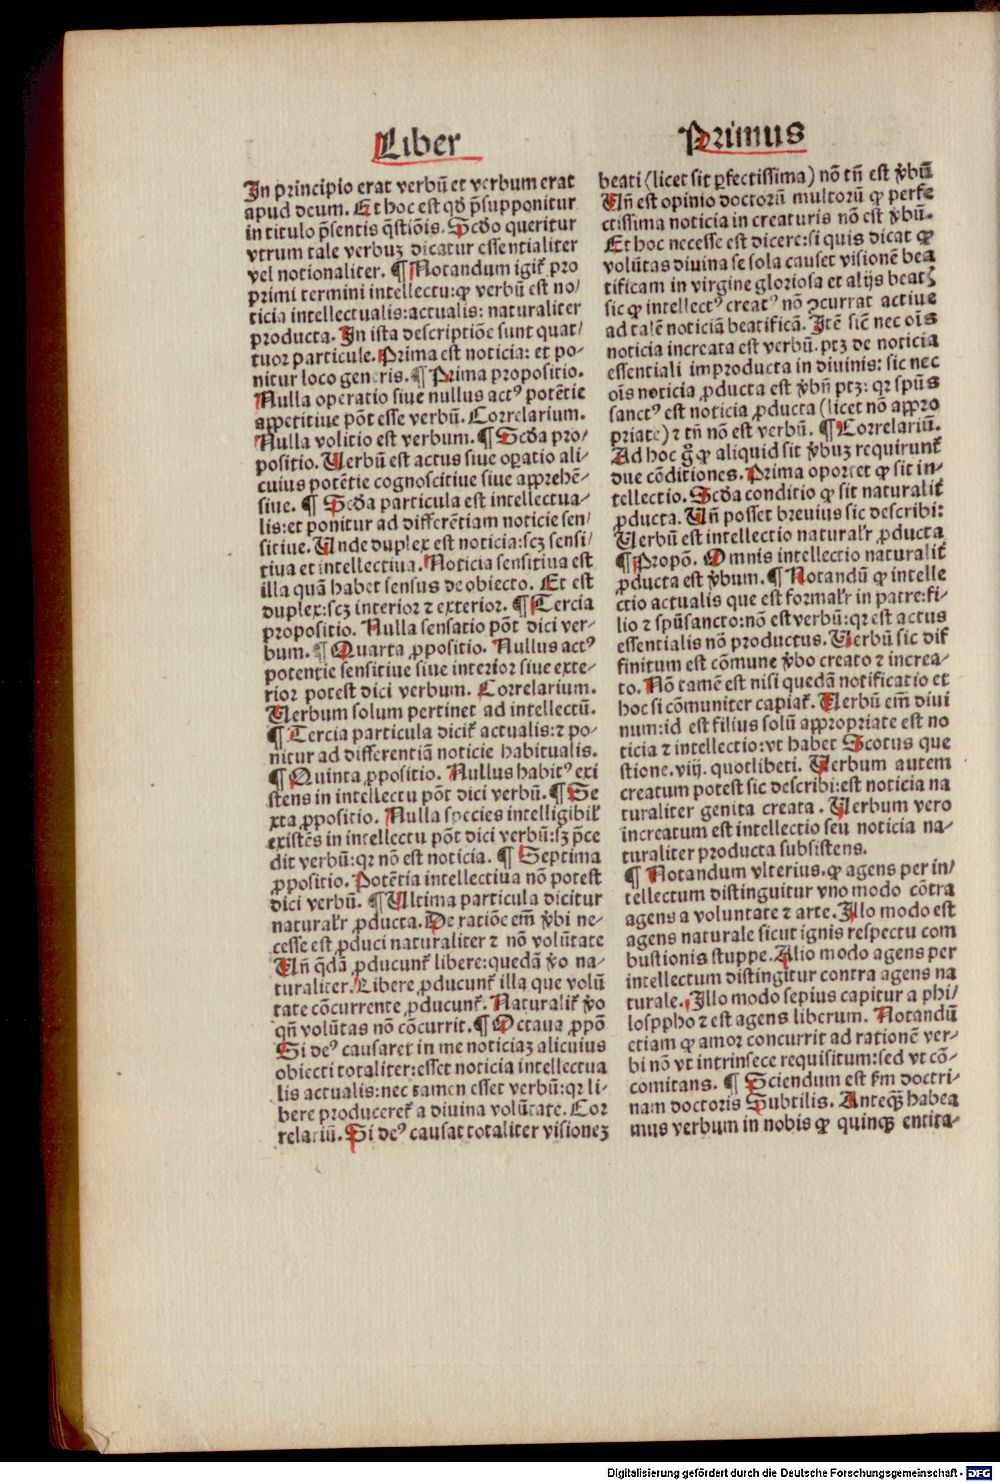 Liber
Primus
In principio erat verbū et verbum erat
apud deum. Et hoc est qḋ p̄supponitur
in titulo p̄sentis q̄stiōis. Scḋo queritur
vtrum tale verbuꝫ dicatur essentialiter
vel notionaliter. ¶ Notandum igit̄ pro
primi termini intellectu: ꝙ verbū est no⸗
ticia intellectualis: actualis: naturaliter
producta. In ista descriptiōe sunt quat⸗
tuor particule. Prima est noticia: et po⸗
nitur loco generis. ¶ Prima propositio.
Nulla operatio siue nullus actꝰ potētie
appetitiue pōt esse verbū. Correlarium.
Nulla volitio est verbum. ¶ Scḋa pro⸗
positio. Verbū est actus siue oꝑatio ali⸗
cuius potētie cognoscitiue siue apprehē⸗
siue. ¶ Scḋa particula est intellectua⸗
lis: et ponitur ad differētiam noticie sen⸗
sitiue. Unde duplex est noticia: scꝫ sensi⸗
tiua et intellectiua. Noticia sensitiua est
illa quā habet sensus de obiecto. Et est
duplex: scꝫ interior ⁊ exterior. ¶ Tercia
propositio. Nulla sensatio pōt dici ver⸗
bum. ¶ Quarta ꝓpositio. Nullus actꝰ
potentie sensitiue siue interior siue exte⸗
rior potest dici verbum. Correlarium.
Verbum solum pertinet ad intellectū.
¶ Tercia particula dicit̄ actualis: ⁊ po⸗
nitur ad differentiā noticie habitualis.
¶ Quinta ꝓpositio. Nullus habitꝰ exi
stens in intellectu pōt dici verbū. ¶ Se
xta ꝓpositio. Nulla species intelligibil̄
existēs in intellectu pōt dici verbū: sꝫ p̄ce
dit verbū: qꝛ nō est noticia. ¶ Septima
ꝓpositio. Potētia intellectiua nō potest
dici verbū. ¶ Ultima particula dicitur
naturaľr ꝓducta. De ratiōe em̄ v̇bi ne⸗
cesse est ꝓduci naturaliter ⁊ nō volūtate
Un̄ q̄dā ꝓducunt̄ libere: quedā v̇o na⸗
turaliter. Libere ꝓducunt̄ illa que volū
tate cōcurrente ꝓducunt̄. Naturalit̄ v̇o
qn̄ volūtas nō cōcurrit. ¶ Octaua ꝓpō
Si deꝰ causaret in me noticiaꝫ alicuius
obiecti totaliter: esset noticia intellectua
lis actualis: nec tamen esset verbū: qꝛ li⸗
bere produceret̄ a diuina volūtate. Cor
relariū. Si deꝰ causat totaliter visioneꝫ
beati (licet sit ꝑfectissima) nō tn̄ est v̇bū
Un̄ est opinio doctorū multorū ꝙ perfe
ctissima noticia in creaturis nō est v̇bū.
Et hoc necesse est dicere: si quis dicat ꝙ
volūtas diuina se sola causet visionē bea
tificam in virgine gloriosa et alijs beatꝭ
sic ꝙ intellectꝰ creatꝰ nō ꝯcurrat actiue
ad talē noticiā beatificā. Itē sic̄ nec oīs
noticia increata est verbū. ptꝫ de noticia
essentiali improducta in diuinis: sic nec
oīs noticia ꝓducta est v̇bū ptꝫ: qꝛ spūs
sanctꝰ est noticia ꝓducta (licet nō appro
priate) ⁊ tn̄ nō est verbū. ¶ Correlariū.
Ad hoc g̊ ꝙ aliquid sit v̇buꝫ requirunt̄
due cōditiones. Prima oportet ꝙ sit in⸗
tellectio. Scḋa conditio ꝙ sit naturalit̄
ꝓducta. Un̄ posset breuius sic describi:
Verbū est intellectio naturaľr ꝓducta
¶ Propō. Omnis intellectio naturalit̄
ꝓducta est v̇bum. ¶ Notandū ꝙ intelle
ctio actualis que est formaľr in patre: fi⸗
lio ⁊ spūsancto: nō est verbū: qꝛ est actus
essentialis nō productus. Verbū sic dif
finitum est cōmune v̇bo creato ⁊ increa⸗
to. Nō tamē est nisi quedā notificatio et
hoc si cōmuniter capiat̄. Verbū em̄ diui
num: id est filius solū appropriate est no
ticia ⁊ intellectio: vt habet Scotus que
stione. viij. quotlibeti. Verbum autem
creatum potest sic describi: est noticia na
turaliter genita creata. Verbum vero
increatum est intellectio seu noticia na⸗
turaliter producta subsistens.
¶ Notandum vlterius. ꝙ agens per in⸗
tellectum distinguitur vno modo cōtra
agens a voluntate ⁊ arte. Illo modo est
agens naturale sicut ignis respectu com
bustionis stuppe. Alio modo agens per
intellectum distingitur contra agens na
turale. Illo modo sepius capitur a phi⸗
losppho ⁊ est agens liberum. Notandū
etiam ꝙ amor concurrit ad rationē ver⸗
bi nō vt intrinsece requisitum: sed vt cō⸗
comitans. ¶ Sciendum est ſm doctri⸗
nam doctoris Subtilis. Anteqꝫ habea
mus verbum in nobis ꝙ quinqꝫ entita⸗
Digitalisierung gefördert durch die Deutsche Forschungsgemeinschaft - DFG